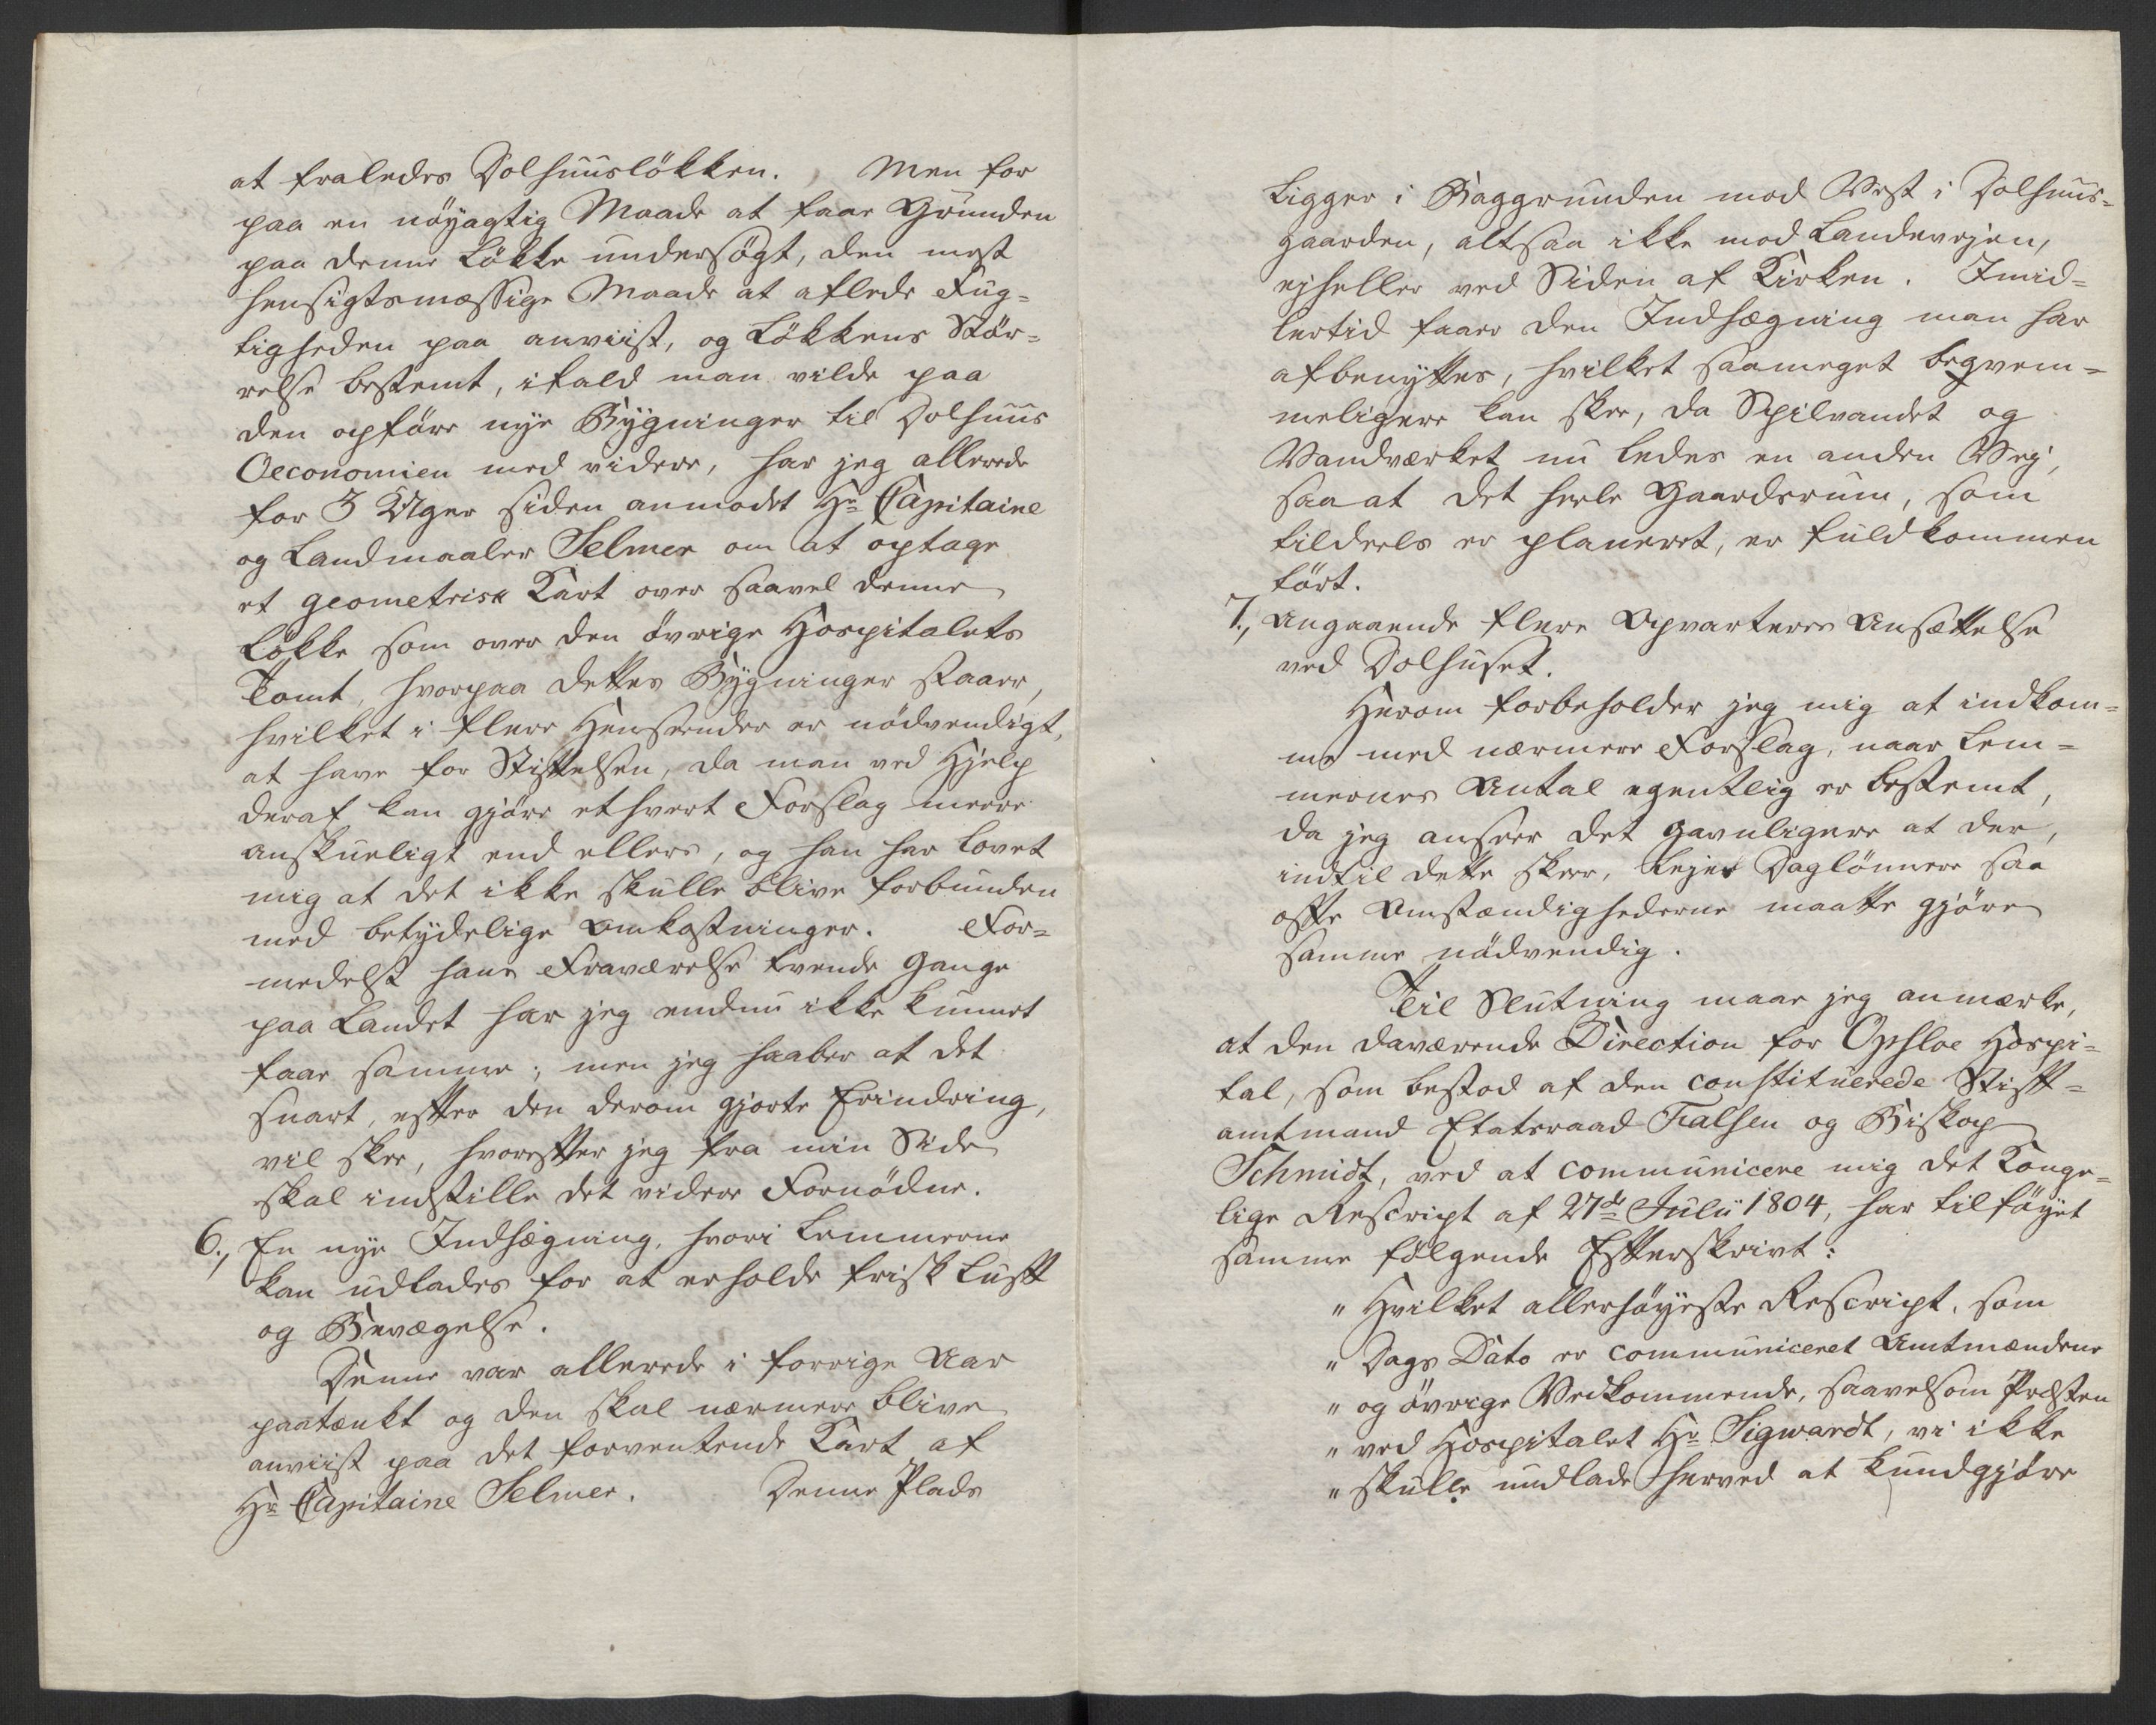 at fraledes Dolhuusløkken. Men for
paa en nöyagtig Maade at faae Grunden
paa denne Løkke undersøgt, den mest
hensigtsmæssige Maade at aflede Fug-
tigheden paa anviist, og Løkkens Stör-
relse bestemt, ifald man vilde paa
den opføre nye Bygninger til Dolhuus
Oeconomien med videre, har jeg allerede
for 3 Uger siden anmodet Hr Capitaine
og Landmaaler Selmer om at optage
et geometrisk Kart over saavel denne
Løkke som over den övrige Hospitalets
Tomt, hvorpaa dettes Bygninger staaer,
hvilket i flere Henseender er nödvendigt,
at have for Stiftelsen, da man ved Hjelp
deraf kan gjöre ethvert Forslag meere
anskueligt end ellers, og han har lovet
mig at det ikke skulle blive forbunden
med betydelige Omkostninger. For-
medelst hans Fraværelse tvende Gange
paa Landet har jeg endnu ikke kunnet
faae samme; men jeg haaber at det
snart, efter den derom gjorte Erindring,
vil skee, hvorefter jeg fra min Side
skal indstille det videre Fornödne.
6., En nye Indhægning, hvori Lemmerne
kan udlades for at erholde frisk Luft
og Bevægelse.
Denne var allerede i forrige Aar
paatænkt og den skal nærmere blive
anviist paa det forventende Kart af
Hr Capitaine Selmer. Denne Plads
ligger i Baggrunden mod Vest i Dolhuus-
gaarden, altsaa ikke mod Landevejen,
ejheller ved Siden af Kirken. Imid-
lertid faaer den Indhægning man har
afbenyttes, hvilket saameget beqvem-
meligere kan skee, da Spilvandet og
Vandværket nu ledes en anden Vej,
saa at det heele Gaardsrum, som
tildeels er planeret, er fuldkommen
tört.
7., Angaaende flere Opvarteres Ansættelse
ved Dolhuset.
Herom forbeholder jeg mig at indkom-
me med nærmere Forslag, naar Lem-
mernes Antal egentlig er bestemt,
da jeg anseer det gavnligere at der,
indtil dette skeer, lejes Daglönnere saa
ofte Omstændighederne maatte gjöre
samme nödvendig.
Til Slutning maae jeg anmærke,
at den daværende Direction for Opsloe Hospi-
tal, som bestod af den constituerede Stift-
amtmand Etatsraad Falsen og Biskop
Schmidt, ved at communicere mig det Konge-
lige Rescript af 27de Julii 1804, har tilföyet
samme fölgende Efterskrivt:
" Hvilket allerhöyeste Rescript, som
" Dags Dato er communiceret Amtmændene
" og övrige Vedkommende, saavelsom Præsten
" ved Hospitalet Hr Sigwardt, vi ikke
" skulle undlade herved at kundgjöre